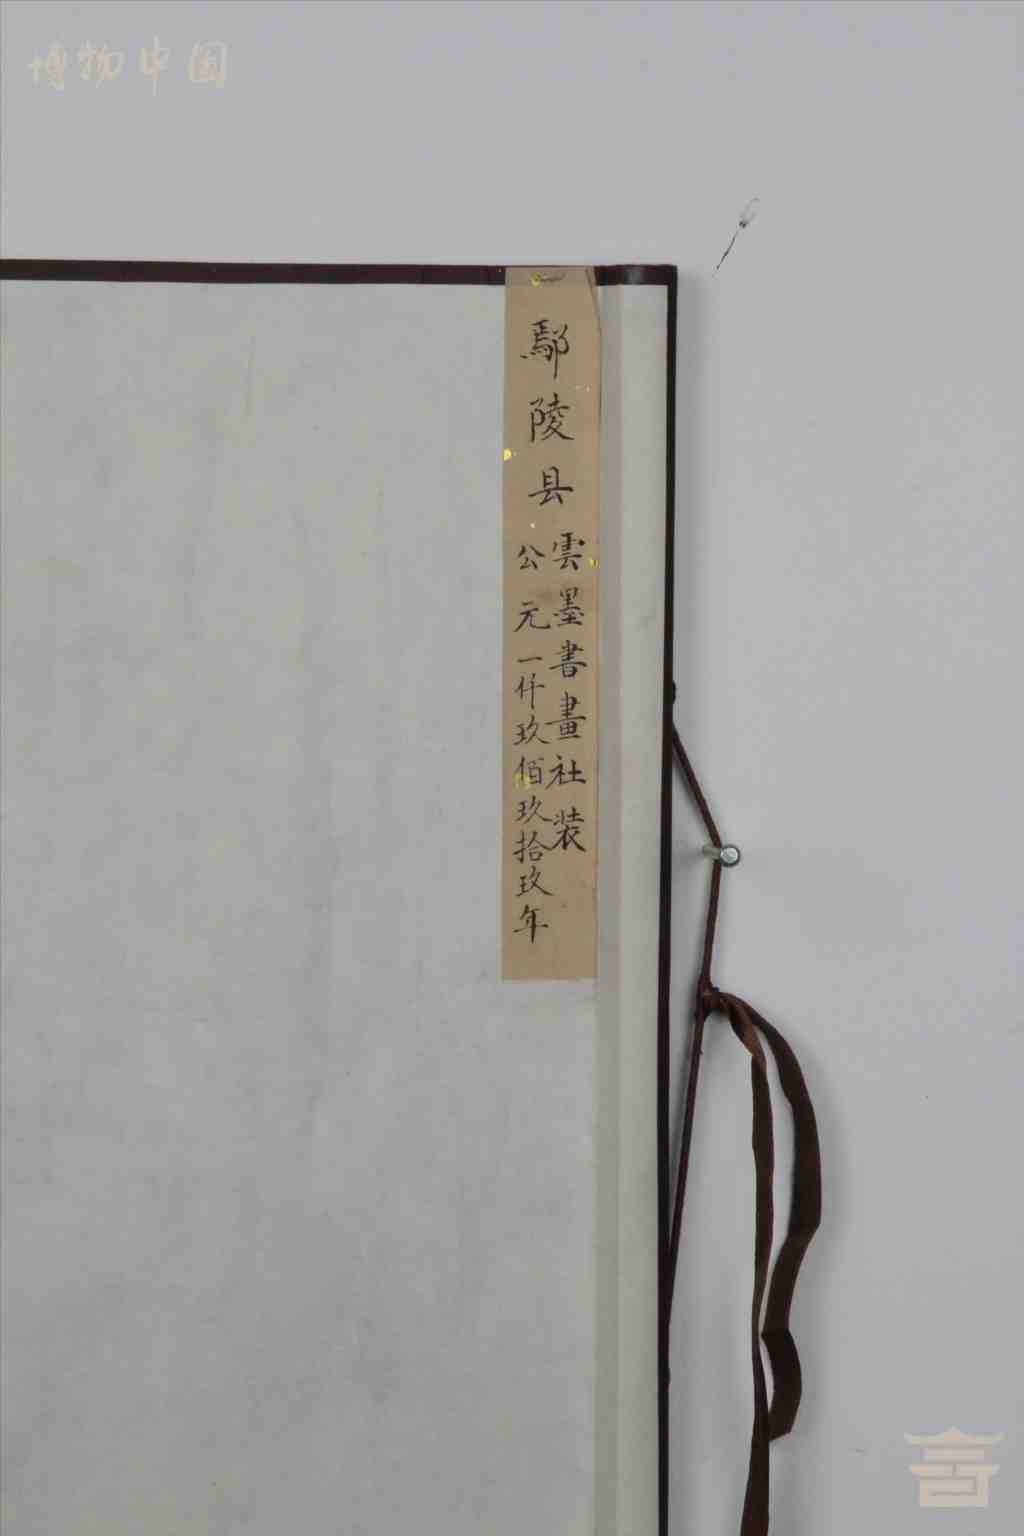 博物中国
鄢陵县
雲墨書畫社装
公元一仟玖佰玖拾玖年